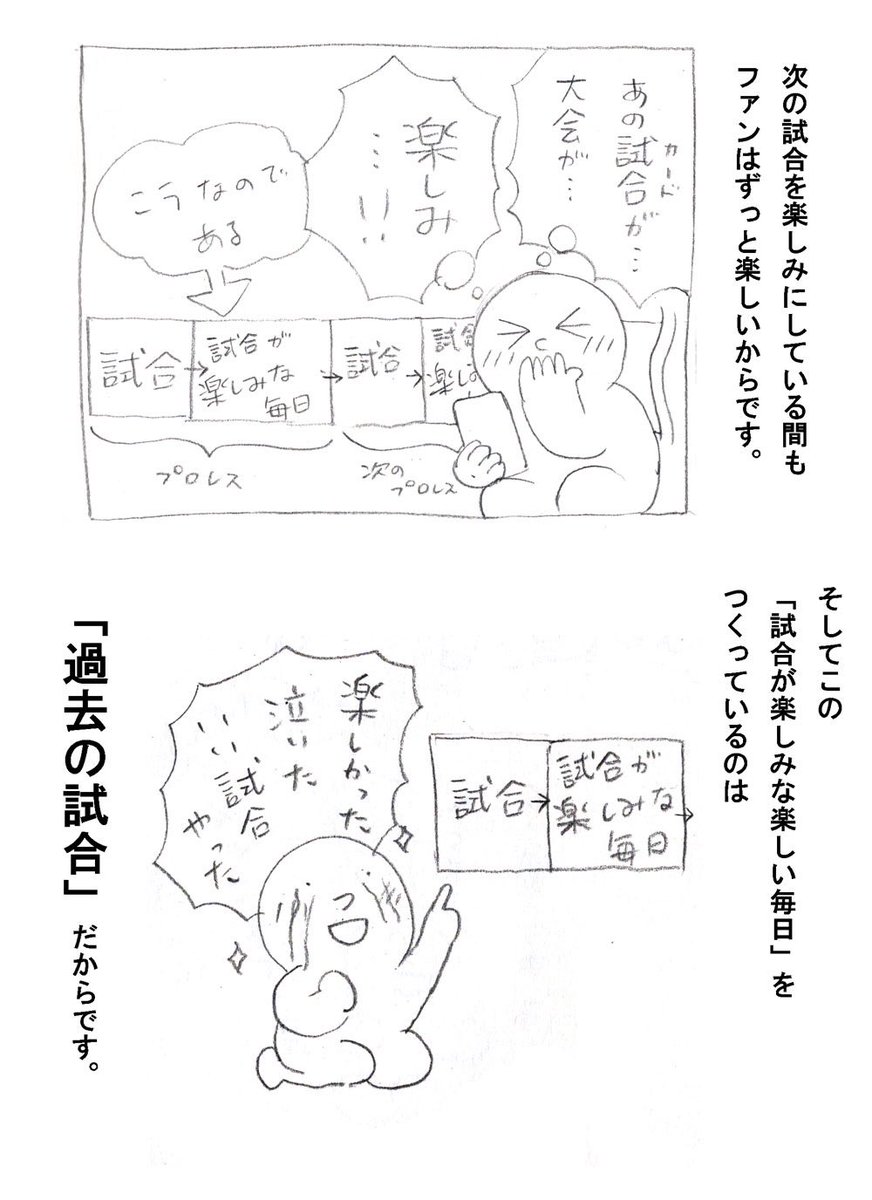 次の試合を楽しみにしている間も
ファンはずっと楽しいからです。
あの試合が…
カード
大会が…
楽しみ
…!!
こうなので
ある
試合
試合が
楽しみな
毎日
試合
試合
楽しみ
プロレス
次の
プロレス
そしてこの
「試合が楽しみな楽しい毎日」を
つくっているのは
試合
試合が
楽しみな
毎日
楽しかった
泣いた
いい試合
やった
「過去の試合」だからです。